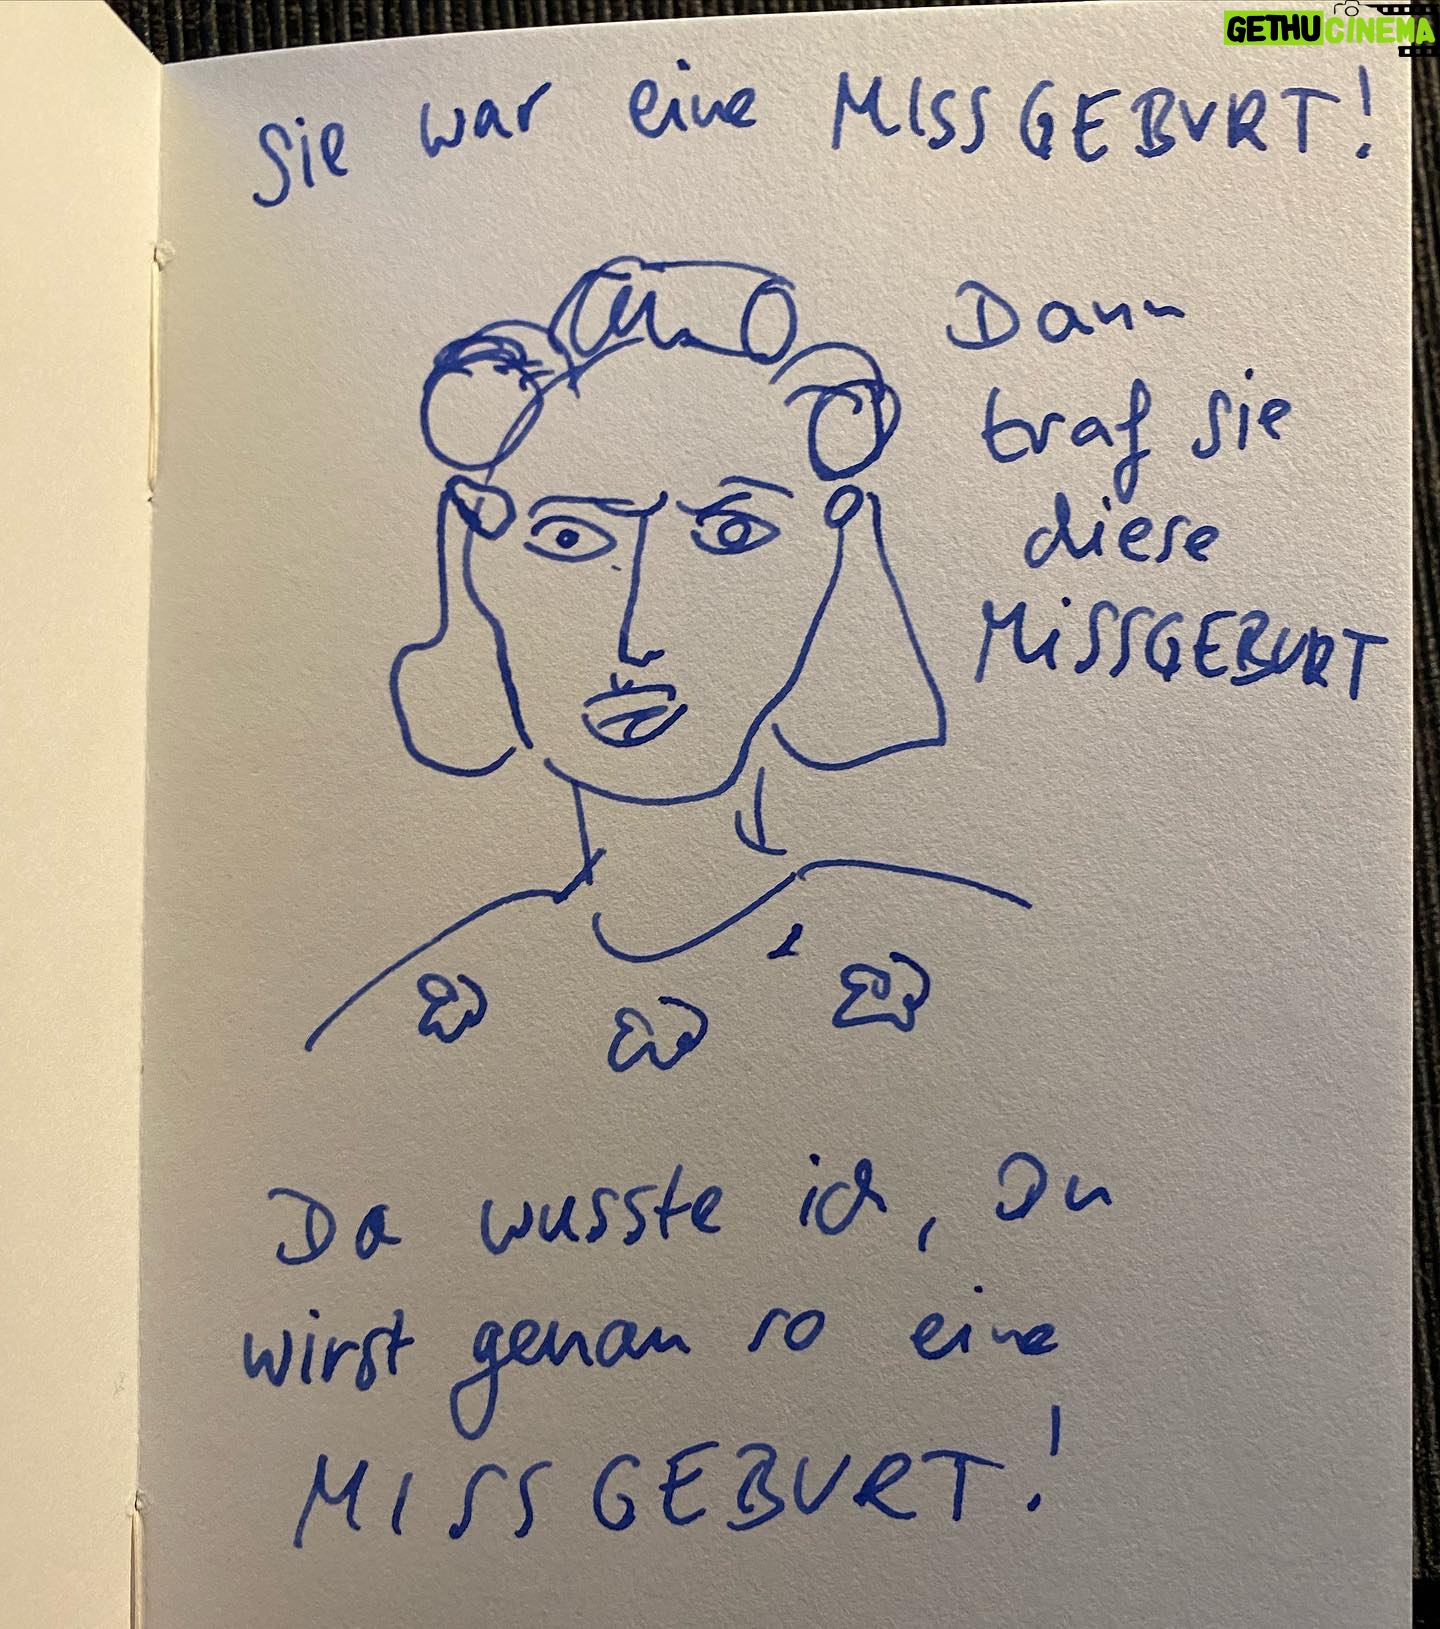 GETHUCINEMA
Sie war eine MISSGEBURT!
Dann
traf sie
diese
MiSSGEBURT
Da wusste ich, Du
wirst genau so eine
MISSGEBURT!